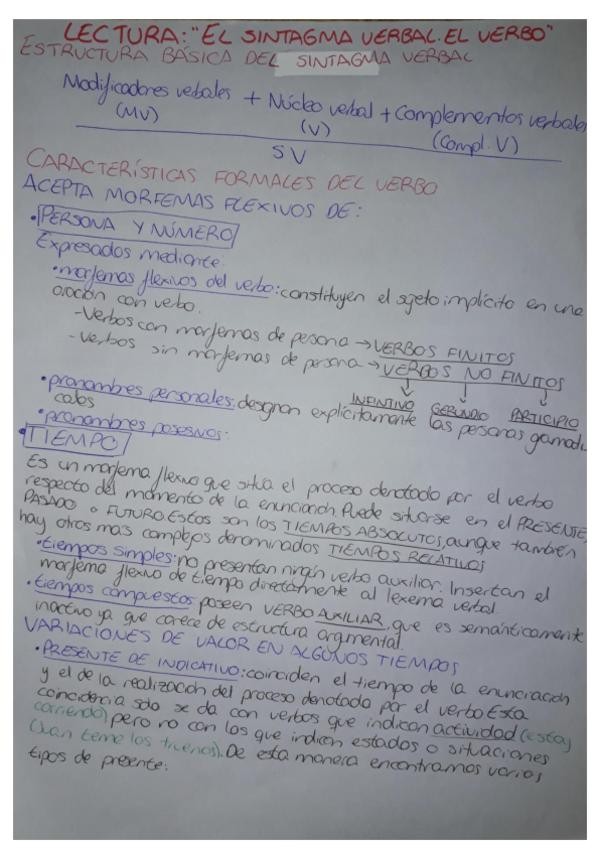 LECTURA: "EL SINTAGMA VERBAL. EL VERBO"
ESTRUCTURA BÁSICA DEL SINTAGMA VERBAL
Modificadores verbales + Núcleo verbal + Complementos verbales
(MV) (V) (Compl. V)
SV
CARACTERÍSTICAS FORMALES DEL VERBO
ACEPTA MORFEMAS FLEXIVOS DE:
• PERSONA Y NÚMERO
Expresados mediante:
• morfemas flexivos del verbo: constituyen el sujeto implícito en una
oración con verbo.
- Verbos con morfemas de persona → VERBOS FINITOS
- Verbos sin morfemas de persona → VERBOS NO FINITOS
INFINITIVO GERUNDIO PARTICIPIO
• pronombres personales: designan explícitamente las personas gramati
cales
• pronombres posesivos:
• TIEMPO
Es un morfema flexivo que sitúa el proceso denotado por el verbo
respecto del momento de la enunciación. Puede situarse en el PRESENTE,
PASADO o FUTURO. Estos son los TIEMPOS ABSOLUTOS, aunque también
hay otros más complejos denominados TIEMPOS RELATIVOS
• tiempos simples: no presentan ningún verbo auxiliar. Insertan el
morfema flexivo de tiempo directamente al lexema verbal
• tiempos compuestos: poseen VERBO AUXILIAR, que es semánticamente
inactivo ya que carece de estructura argumental.
VARIACIONES DE VALOR EN ALGUNOS TIEMPOS
• PRESENTE DE INDICATIVO: coinciden el tiempo de la enunciación
y el de la realización del proceso denotado por el verbo. Esta
coincidencia solo se da con verbos que indican actividad (estoy
corriendo) pero no con los que indican estados o situaciones
(Juan teme los truenos). De esta manera encontramos varios
tipos de presente: